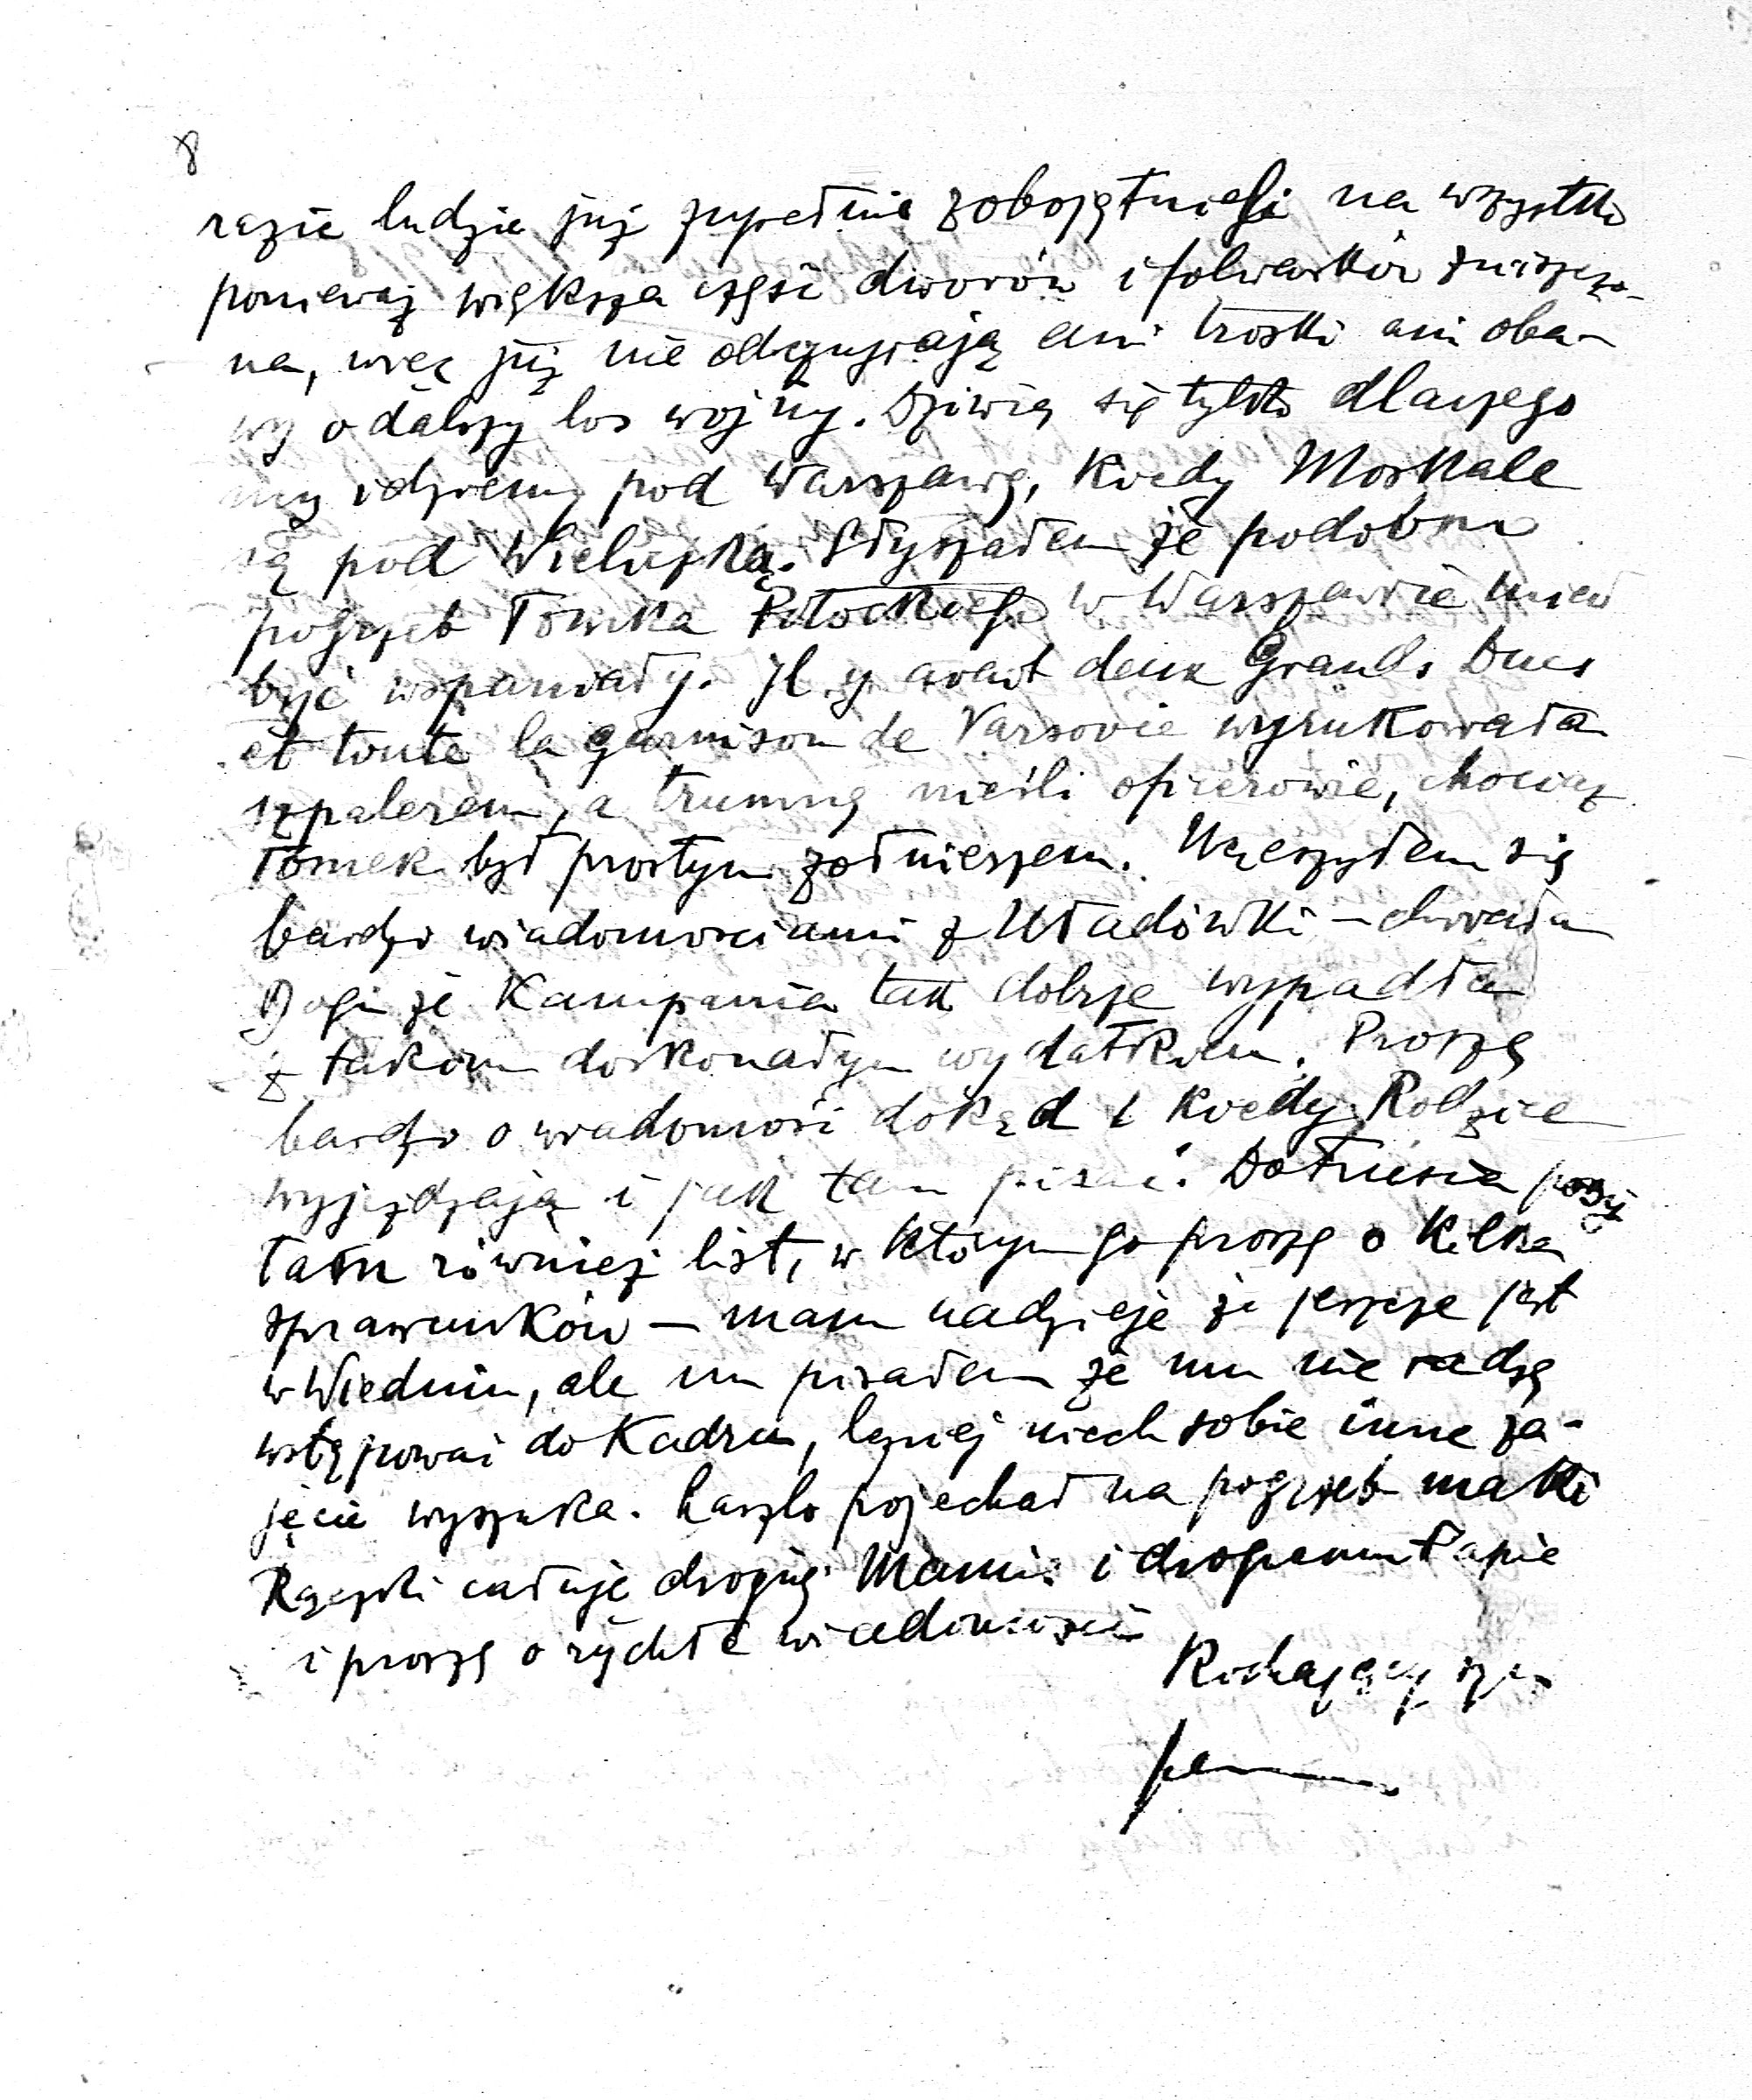 8
razie ludzie już zupełnie zobojętnieli na wszystko
ponieważ większa część dworów i folwarków zniszczo-
na, więc już nie odczuwają ani troski ani oba-
wy o dalszy los wojny. Dziwią się tylko dlaczego
my idziemy pod Warszawę, kiedy Moskale
są pod Wieliczką. Słyszałem że podobno
pogrzeb Tomka Potockiego w Warszawie miał
być wspaniały. Il y avait deux Grands Ducs
et toute la garnison de Varsovie wyrukowała
szpalerem, a trumnę nieśli oficerowie, chociaż
Tomek był prostym żołnierzem. Ucieszyłem się
bardzo wiadomościami z Uładówki – chwała
Bogu że Kampania tak dobrze wypadła
z takim doskonałym wydatkiem. Proszę
bardzo o wiadomość dokąd i kiedy Rodzice
wyjeżdżają i jak tam pisać. Do posy
łam również list, w którym go proszę o kilka
sprawunków – mam nadzieję że jeszcze jest
w Wiedniu, ale mu pisałem że mu nie radzę
wstępować do Kadru, lepiej niech sobie inne za-
jęcie wyszuka. Laszlo pojechał na pogrzeb matki
Rączki całuję drogiej Mamie i drogiemu Papie
i proszę o rychłe wiadomości
Kochający syn